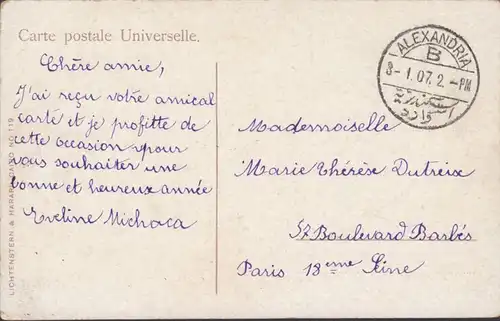 Carte postale Universelle.
Chère amie,
J'ai reçu votre amical
carte et je profitte de
cette occasion pour
vous souhaiter une
bonne et heureux année
Eveline Michaca
LICHTENSTERN & HARARI, CAIRO NO. 119
ALEXANDRIA
B
3-1.07.2.-PM
اسكندرية
وارد
Mademoiselle
Marie Thérèse Dutreix
57 Boulevard Barbés
Paris 18eme Seine